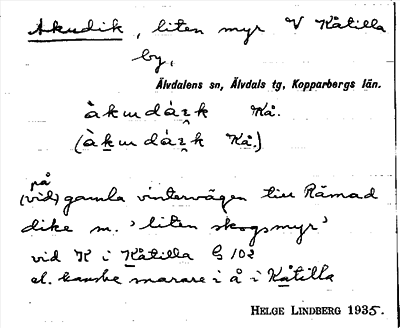 Akudik, liten myr V Kåtilla
by,
Älvdalens sn, Älvdals tg, Kopparbergs län.
Kå.
Kå.)
på
(vid) gamla vintervägen till Råmad
dike m. 'liten skogsmyr'
vid K i Kåtilla G 102
el. kanske snarare i å i Kåtilla
HELGE LINDBERG 1935.